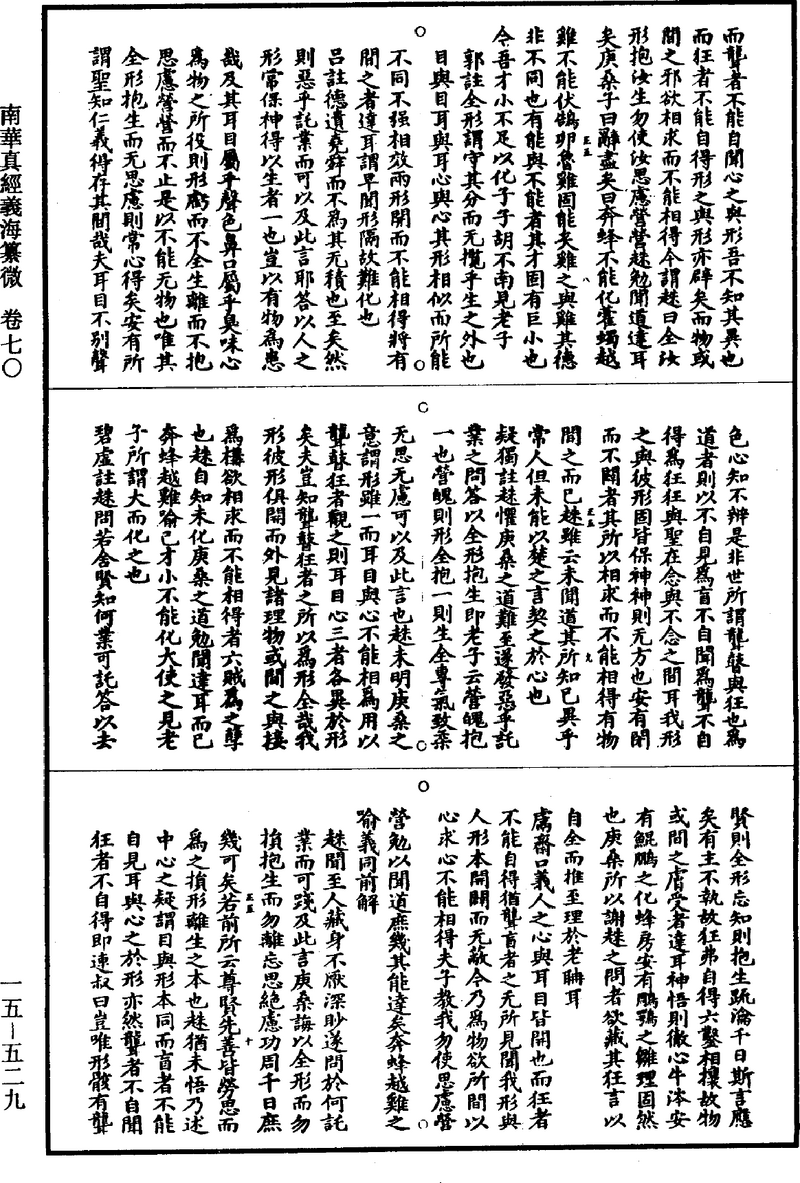 南華真經義海纂微　卷七〇
而聾者不能自聞心之與形吾不知其異也
而狂者不能自得形之與形亦辟矣而物或
間之邪欲相求而不能相得今謂趎曰全汝
形抱汝生勿使汝思慮營營趎勉聞道達耳
矣庚桑子曰辭盡矣曰奔蜂不能化藿蠋越
雞不能伏鵠卵魯雞固能矣雞之與雞其德
非不同也有能與不能者其才固有巨小也
今吾才小不足以化子子胡不南見老子
郭註全形謂守其分而无攬乎生之外也
目與目耳與耳心與心其形相似而所能
不同不强相效兩形開而不能相得將有
間之者達耳謂早聞形隔故難化也
呂註德遺堯舜而不為其无積也至矣然
則惡乎託業而可以及此言耶答以人之
形常保神得以生者一也豈以有物為患
哉及其耳目屬乎聲色鼻口屬乎臭味心
為物之所役則形虧而不全生離而不抱
思慮營營而不止是以不能无物也唯其
全形抱生而无思慮則常心得矣安有所
謂聖知仁義得存其間哉夫耳目不別聲
色心知不辨是非世所謂聾瞽與狂也為
道者則以不自見為盲不自聞為聾不自
得為狂狂與聖在念與不念之間耳我形
之與彼形固皆保神神則无方也安有閉
而不闢者其所以相求而不能相得有物
間之而已趎雖云未聞道其所知已異乎
常人但未能以楚之言契之於心也
疑獨註趎懼庚桑之道難至遂發惡乎託
業之問答以全形抱生即老子云營魄抱
一也營魄則形全抱一則生全專氣致柔
无思无慮可以及此言也趎未明庚桑之
意謂形雖一而耳目與心不能相為用以
聾瞽狂者觀之則耳目心三者各異於形
矣夫豈知聾瞽狂者之所以為形全哉我
形彼形俱開而外見諸理物或間之與接
為構欲相求而不能相得者六賊為之孽
也趎自知未化庚桑之道勉聞達耳而已
奔蜂越雞喻己才小不能化大使之見老
子所謂大而化之也
碧虛註趎問若舍賢知何業可託答以去
賢則全形忘知則抱生疏瀹千日斯言應
矣有主不執故狂弗自得六鑿相攘故物
或間之膚受者達耳神悟則徹心牛涔安
有鯤鵬之化蜂房安有鵰鶚之雛理固然
也庚桑所以謝趎之問者欲藏其狂言以
自全而推至理於老聃耳
鬳齋口義人之心與耳目皆開也而狂者
不能自得猶聾盲者之无所見聞我形與
人形本開闢而无敵今乃為物欲所間以
心求心不能相得夫子教我勿使思慮營
營勉以聞道庶幾其能達矣奔蜂越雞之
喻義同前解
趎聞至人藏身不厭深眇遂問於何託
業而可踐及此言庚桑誨以全形而勿
損抱生而勿離忘思絕慮功周千日庶
幾可矣若前所云尊賢先善皆勞思而
為之損形離生之本也趎猶未悟乃述
中心之疑謂目與形本同而盲者不能
自見耳與心之於形亦然聾者不自聞
狂者不自得即連叔曰豈唯形骸有聾
一五－五二九